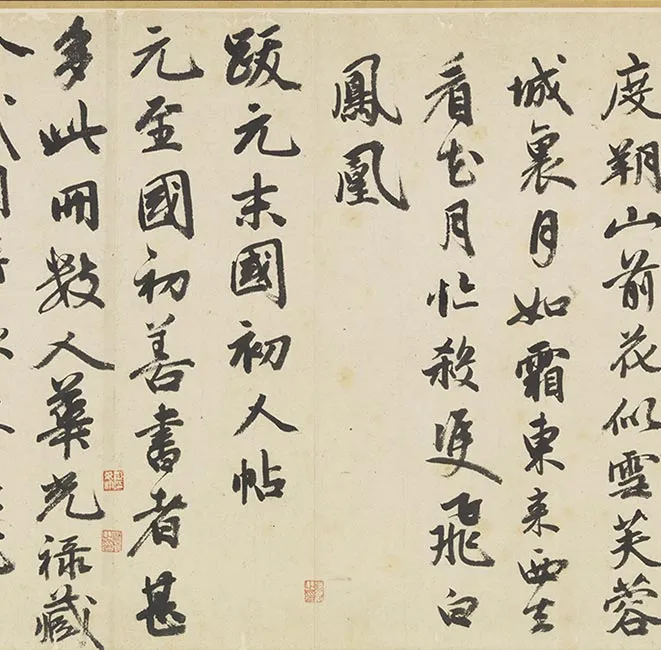 度朔山前花似雪芙蓉
城裏月如霜東来西去
看花月忙殺雙飛白
鳳凰
跋元末國初人帖
元至國初善書者甚
多此冊數人華光祿藏